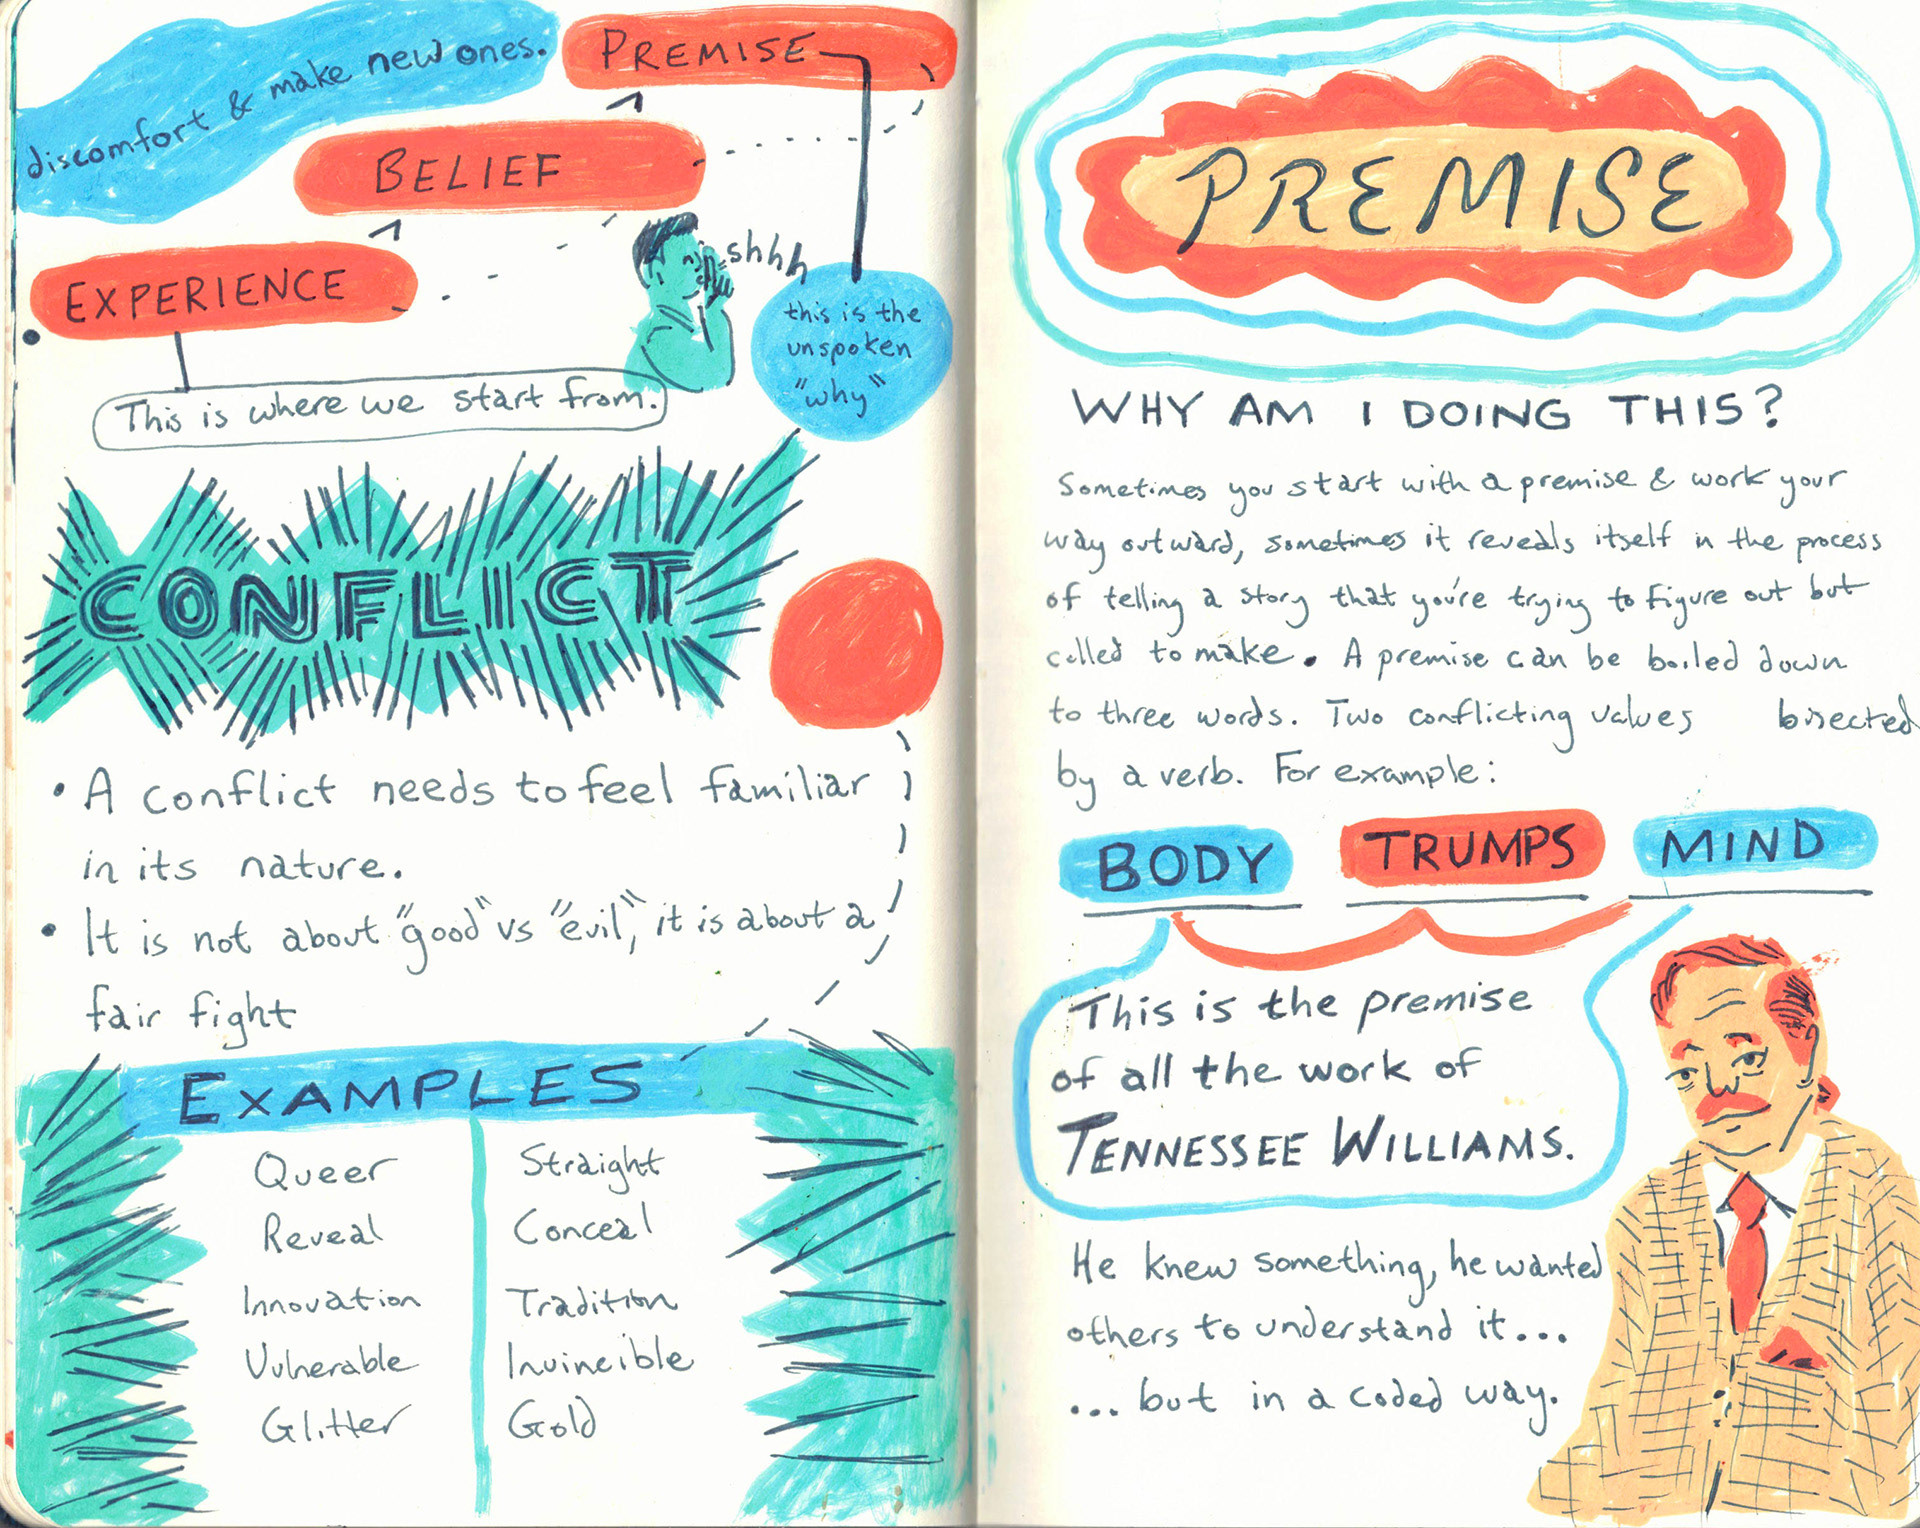 discomfort & make new ones.
PREMISE
BELIEF
EXPERIENCE
shhh
this is the
unspoken
"why"
This is where we start from.
CONFLICT
• A conflict needs to feel familiar
in its nature.
• It is not about "good" vs "evil," it is about a
fair fight
EXAMPLES
Queer Straight
Reveal Conceal
Innovation Tradition
Vulnerable Invincible
Glitter Gold
PREMISE
WHY AM I DOING THIS?
Sometimes you start with a premise & work your
way outward, sometimes it reveals itself in the process
of telling a story that you're trying to figure out but
called to make. A premise can be boiled down
to three words. Two conflicting values bisected
by a verb. For example:
BODY TRUMPS MIND
This is the premise
of all the work of
TENNESSEE WILLIAMS.
He knew something, he wanted
others to understand it...
...but in a coded way.